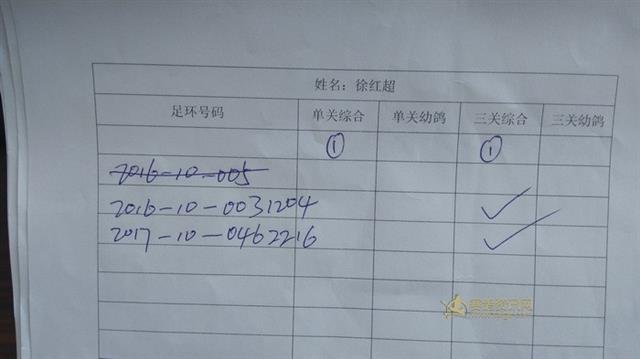 姓名：徐红超
足环号码 单关综合 单关幼鸽 三关综合 三关幼鸽
① ①
2016-10-005
2016-10-0031204 ✓
2017-10-0462216 ✓